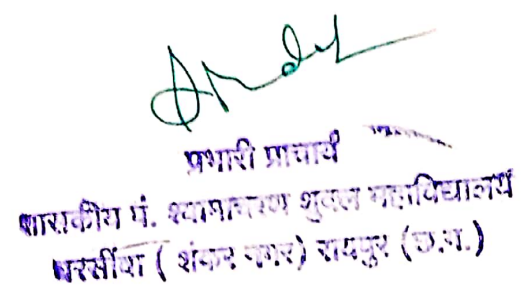 प्रभारी प्राचार्य
शासकीय पं. श्यामाचरण शुक्ल महाविद्यालय
धरसींवा ( शंकर नगर) रायपुर (छ.ग.)